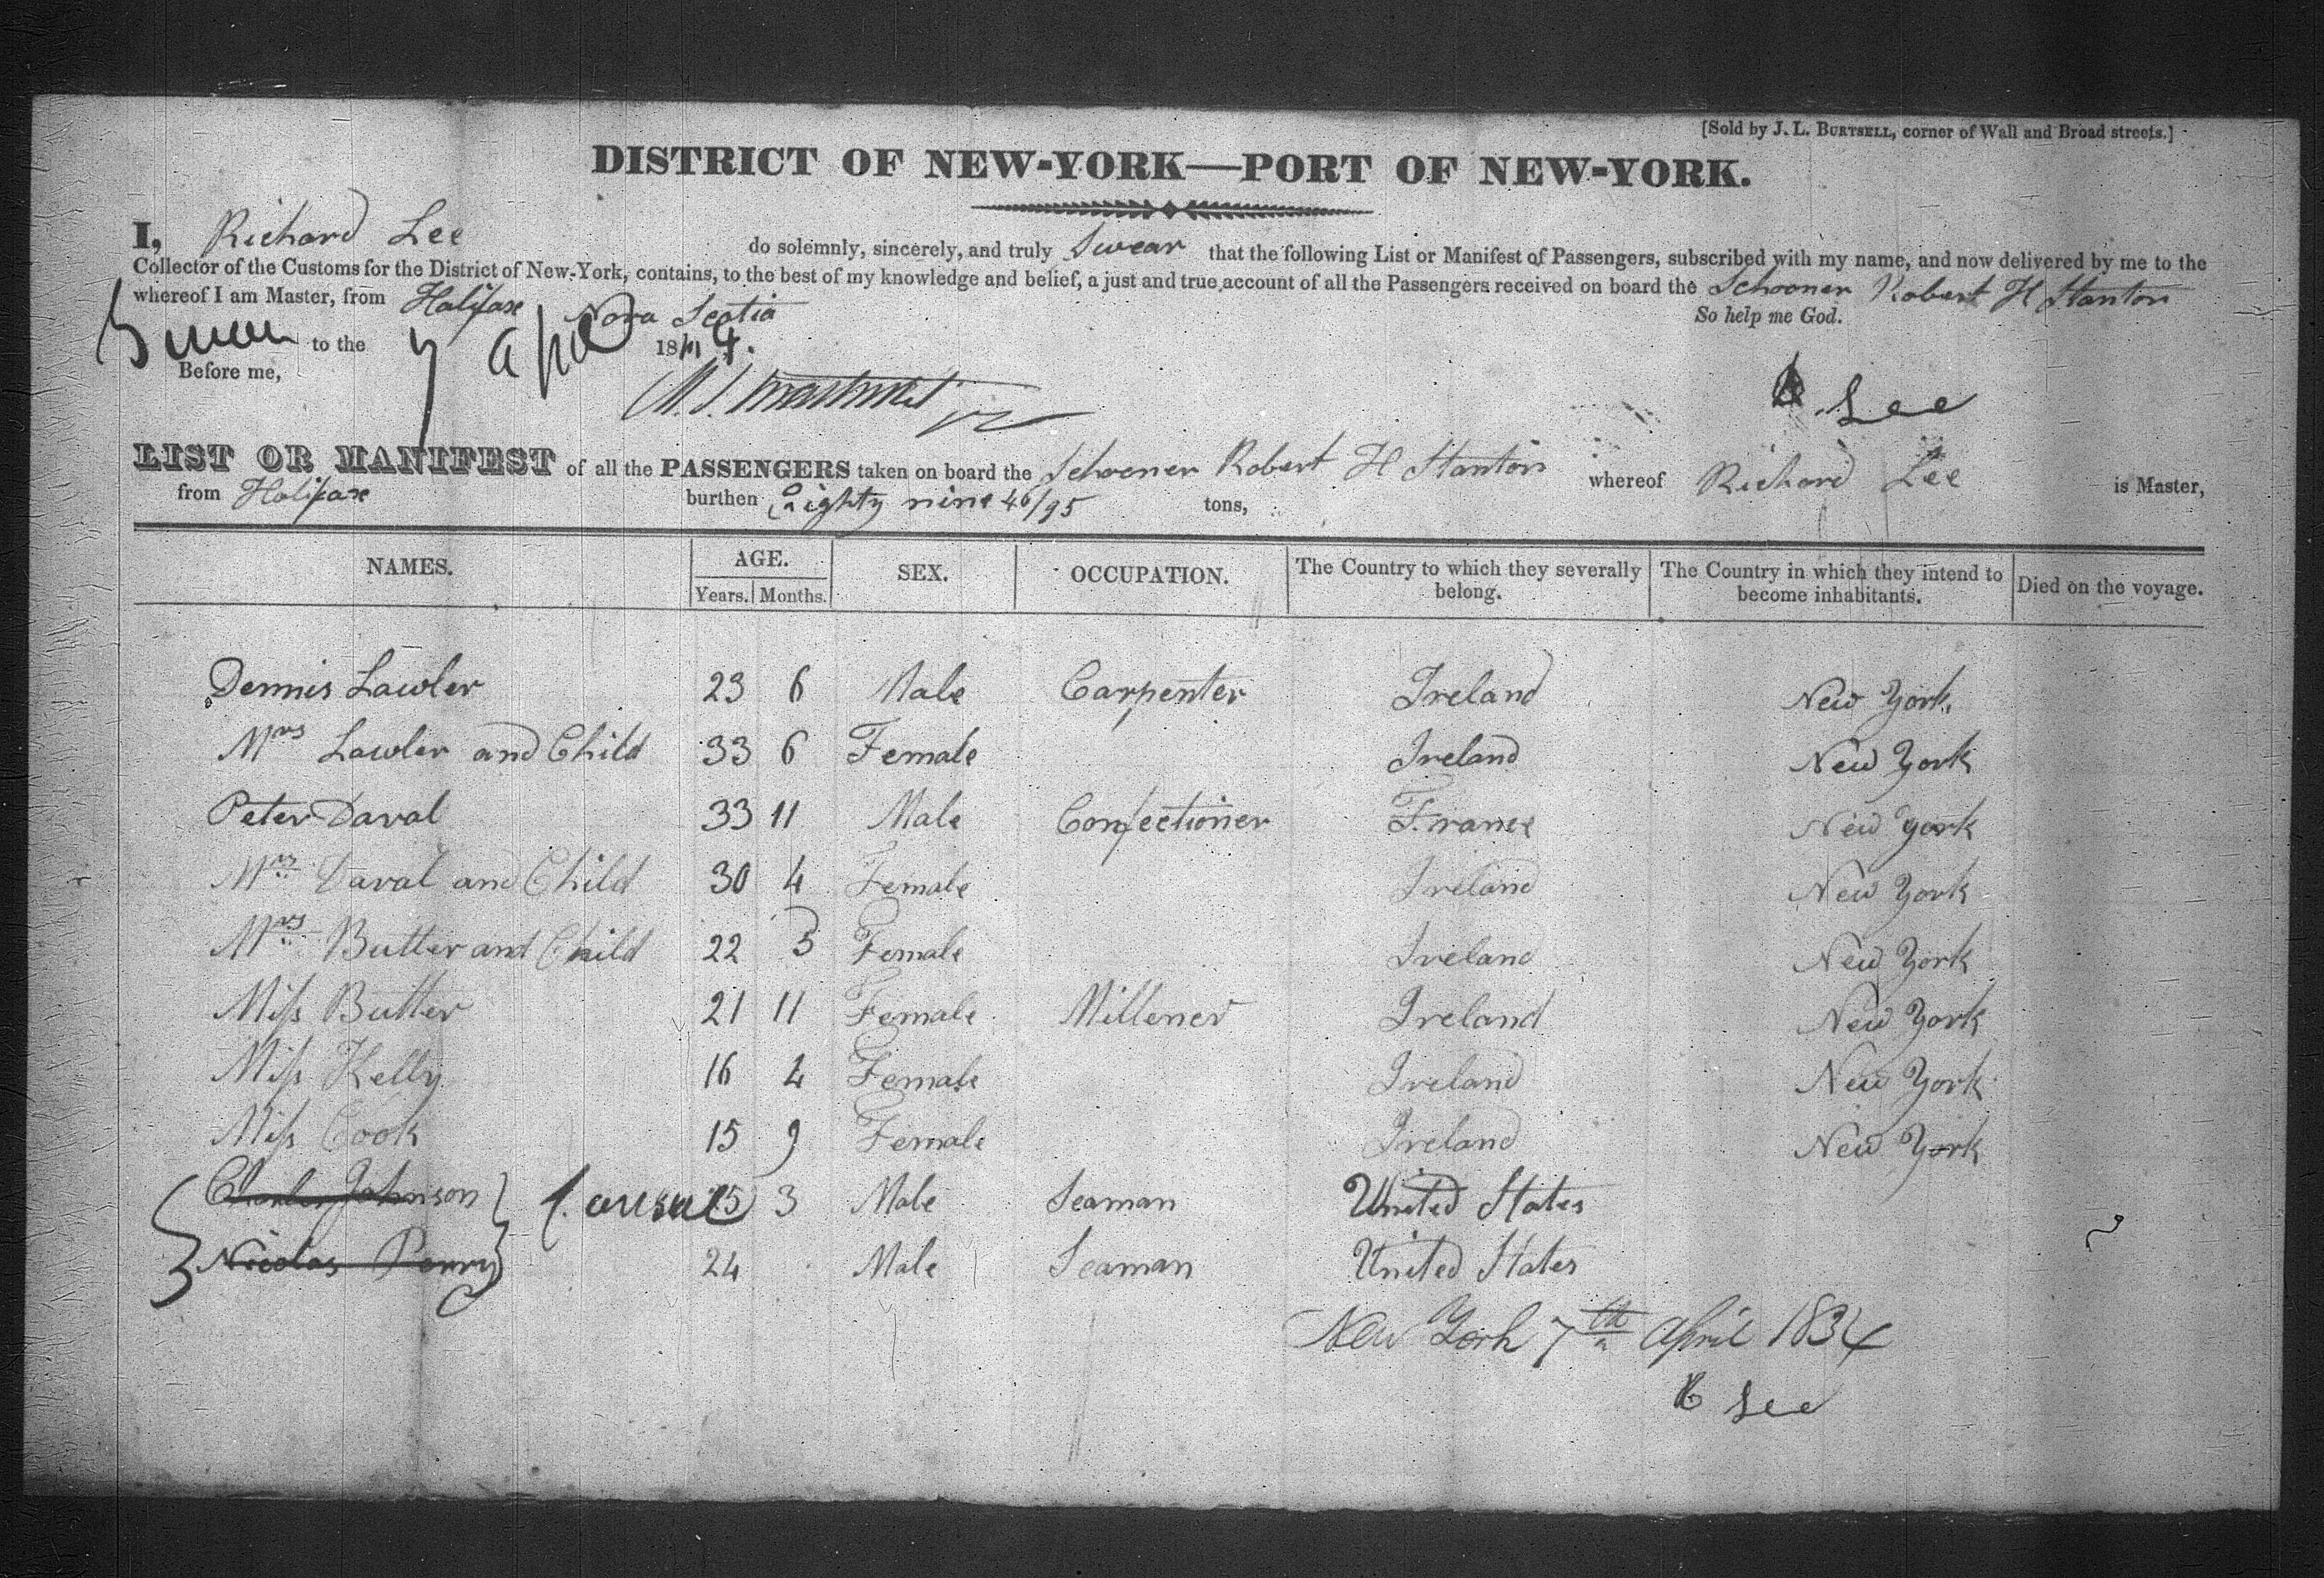 [Sold by J. L. BURTSELL, corner of Wall and Broad streets.]
DISTRICT OF NEW-YORK—PORT OF NEW-YORK.
I, Richard Lee do solemnly, sincerely, and truly Swear that the following List or Manifest of Passengers, subscribed with my name, and now delivered by me to the
Collector of the Customs for the District of New-York, contains, to the best of my knowledge and belief, a just and true account of all the Passengers received on board the Schooner Robert H Stanton
whereof I am Master, from Halifax Nova Scotia
So help me God.
Sworn to the 7 Apl 1834.
Before me,
Lee
LIST OR MANIFEST of all the PASSENGERS taken on board the Schooner Robert H Stanton whereof Richard Lee is Master,
from Halifax burthen Eighty nine 46/95 tons,
NAMES. AGE. SEX. OCCUPATION. The Country to which they severally belong. The Country in which they intend to become inhabitants. Died on the voyage.
Years. Months.
Dennis Lawler 23 6 Male Carpenter Ireland New York
Mrs Lawler and Child 33 6 Female Ireland New York
Peter Daval 33 11 Male Confectioner France New York
Mrs Daval and Child 30 4 Female Ireland New York
Mrs Butter and Child 22 3 Female Ireland New York
Miss Butter 21 11 Female Millener Ireland New York
Miss Kelly 16 2 Female Ireland New York
Miss Cook 15 9 Female Ireland New York
Charles Johnson 25 3 Male Seaman United States
Nicolas Perry 24 Male Seaman United States
New York 7th April 1834
Lee